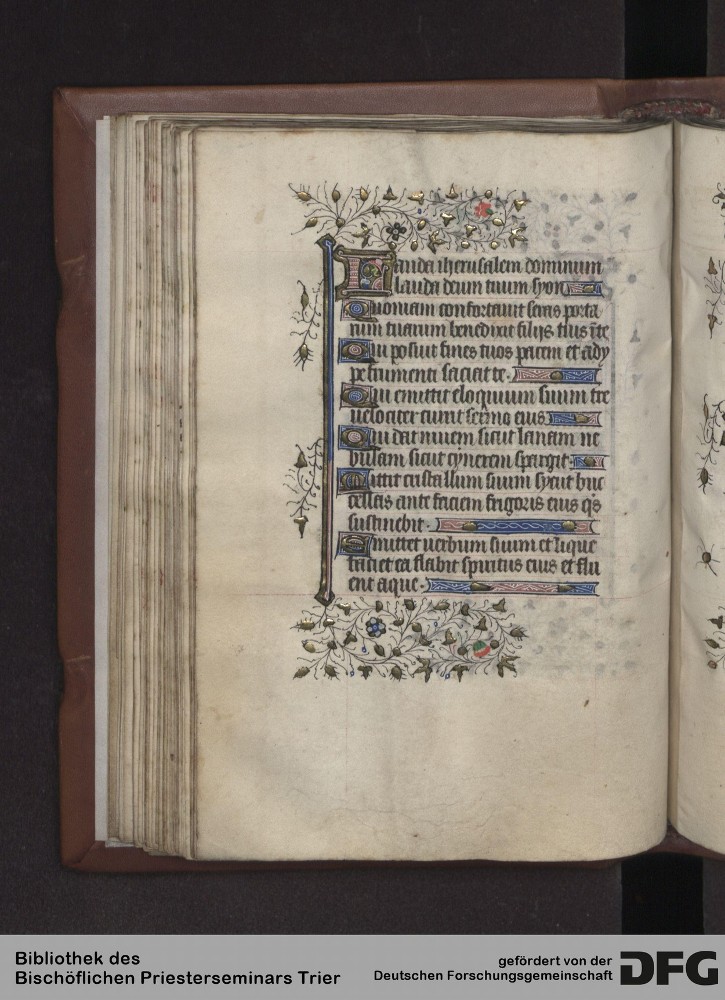 Lauda iherusalem dominum
lauda deum tuum syon
Quoniam confortauit seras porta
rum tuarum benedixit filijs tuis ī te
Qui posuit fines tuos pacem et ady
pe frumenti saciat te
Qui emittit eloquium suum tre
uelociter currit sermo eius
Qui dat niuem sicut lanam ne
bulam sicut cynerem spargit
Mittit cristallum suum sycut buc
cellas ante faciem frigoris eius q̄s
sustinebit
Emittet uerbum suum et lique
faciet ea flabit spiritus eius et flu
ent aque
Bibliothek des
Bischöflichen Priesterseminars Trier
gefördert von der
Deutschen Forschungsgemeinschaft
DFG